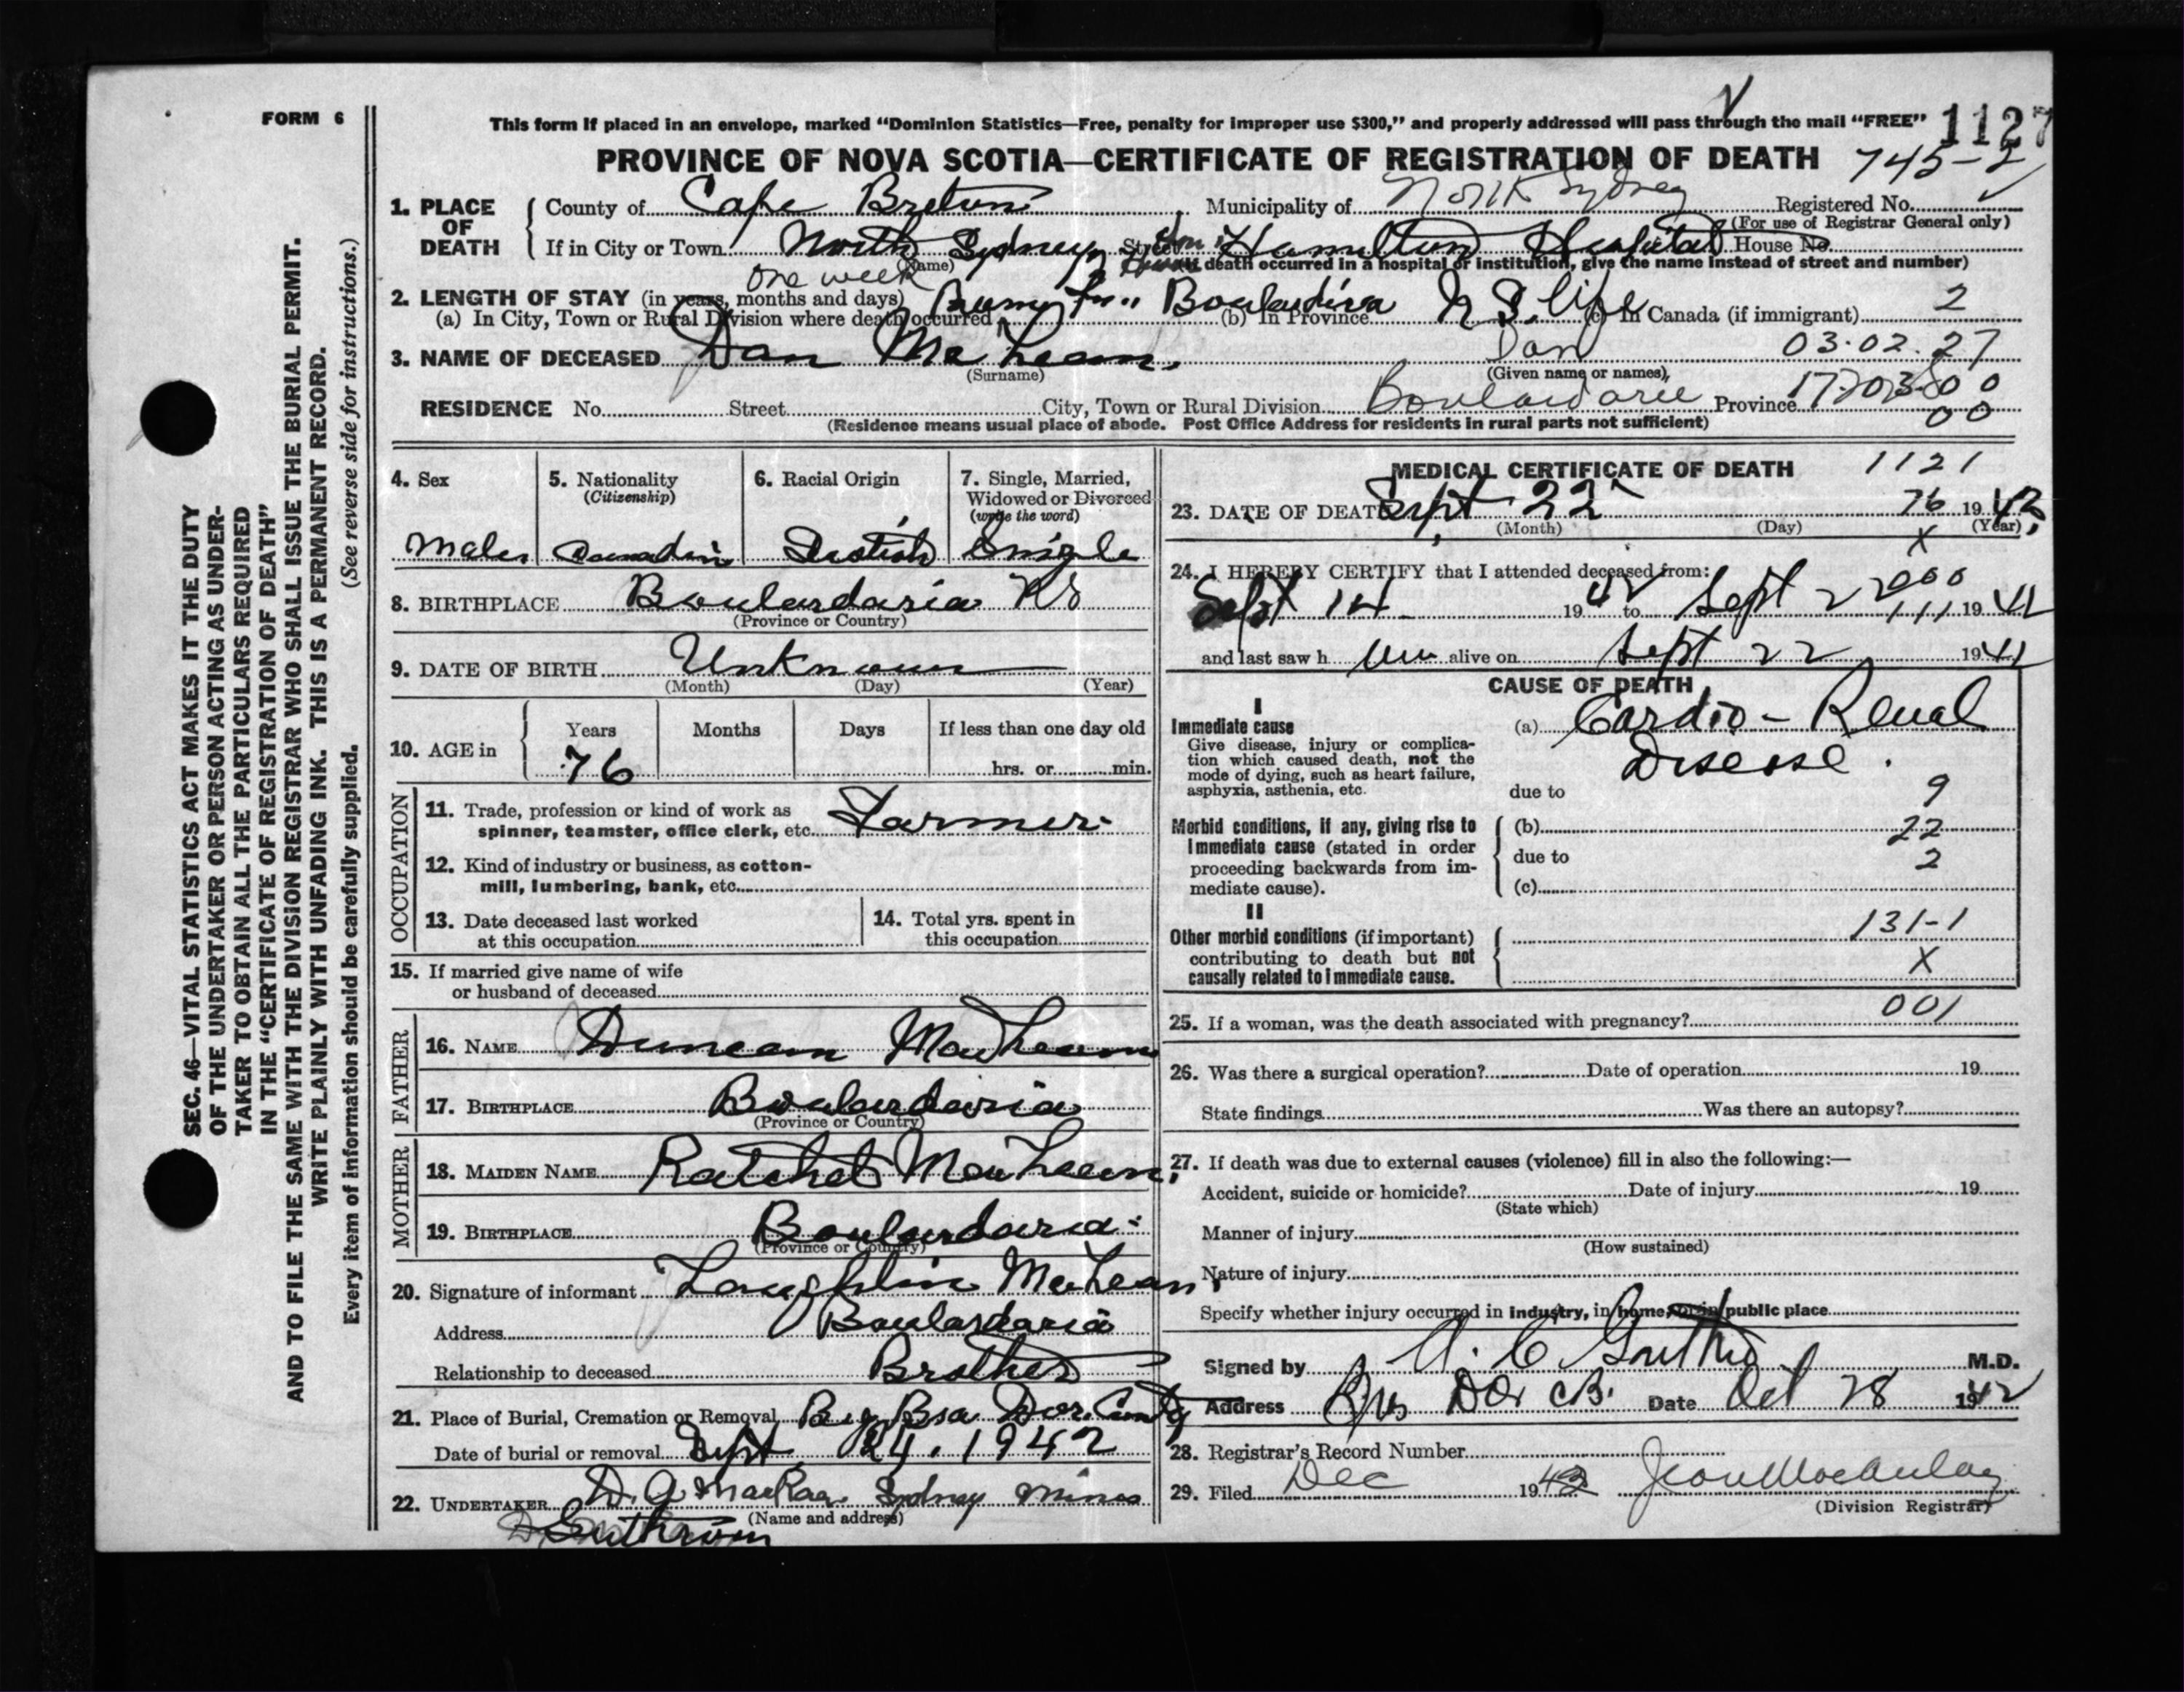 FORM 6
This form if placed in an envelope, marked “Dominion Statistics—Free, penalty for improper use $300,” and properly addressed will pass through the mail “FREE”
1127
PROVINCE OF NOVA SCOTIA—CERTIFICATE OF REGISTRATION OF DEATH
745-2
1. PLACE OF DEATH
County of Cape Breton Municipality of North Sydney Registered No.
(For use of Registrar General only)
If in City or Town North Sydney, Street Hamilton Hospital House No.
(Name) death occurred in a hospital or institution, give the name instead of street and number)
one week
2. LENGTH OF STAY (in years, months and days)
(a) In City, Town or Rural Division where death occurred (b) In Province N S. life (c) In Canada (if immigrant) 2
3. NAME OF DECEASED Dan McLean, Dan 03.02.27
(Surname) (Given name or names),
RESIDENCE No. Street City, Town or Rural Division Boulardarie Province
00
(Residence means usual place of abode. Post Office Address for residents in rural parts not sufficient)
4. Sex
Male
5. Nationality
(Citizenship)
Canadian
6. Racial Origin
Scotish
7. Single, Married,
Widowed or Divorced
(write the word)
Single
8. BIRTHPLACE Boulardaria NS
(Province or Country)
9. DATE OF BIRTH Unknown
(Month) (Day) (Year)
10. AGE in
Years Months Days If less than one day old
76 hrs. or min.
OCCUPATION
11. Trade, profession or kind of work as
spinner, teamster, office clerk, etc. Farmer
12. Kind of industry or business, as cotton-
mill, lumbering, bank, etc.
13. Date deceased last worked
at this occupation
14. Total yrs. spent in
this occupation
15. If married give name of wife
or husband of deceased
FATHER
16. NAME Duncan MacLean
17. BIRTHPLACE Boulardaria
(Province or Country)
MOTHER
18. MAIDEN NAME Ratchel MacLean,
19. BIRTHPLACE Boulardaria
(Province or Country)
20. Signature of informant Laughlin MacLean,
Address Boulardaria
Relationship to deceased Brother
21. Place of Burial, Cremation or Removal Big Bsa Dor. County
Date of burial or removal Sept 24, 1942
22. UNDERTAKER D. A MacRae Sydney Mines
(Name and address)
MEDICAL CERTIFICATE OF DEATH 1121
23. DATE OF DEATH Sept 22 76 1942,
(Month) (Day) (Year)
X
24. I HEREBY CERTIFY that I attended deceased from:
000
Sept 14 1942 to Sept 22 1942
and last saw h im alive on Sept 22 1942
CAUSE OF DEATH
I
Immediate cause
Give disease, injury or complica-
tion which caused death, not the
mode of dying, such as heart failure,
asphyxia, asthenia, etc.
(a) Cardio-Renal
Disease.
due to 9
Morbid conditions, if any, giving rise to
immediate cause (stated in order
proceeding backwards from im-
mediate cause).
(b) 22
due to 2
(c)
II
Other morbid conditions (if important)
contributing to death but not
causally related to immediate cause.
131-1
X
25. If a woman, was the death associated with pregnancy? 001
26. Was there a surgical operation? Date of operation 19
State findings Was there an autopsy?
27. If death was due to external causes (violence) fill in also the following:—
Accident, suicide or homicide? Date of injury 19
(State which)
Manner of injury
(How sustained)
Nature of injury
Specify whether injury occurred in industry, in home, or in public place
Signed by A. C Guthro M.D.
Address Date Oct 28 1942
28. Registrar's Record Number
29. Filed Dec 1942 Jean MacAulay
(Division Registrar)
SEC. 46—VITAL STATISTICS ACT MAKES IT THE DUTY
OF THE UNDERTAKER OR PERSON ACTING AS UNDER-
TAKER TO OBTAIN ALL THE PARTICULARS REQUIRED
IN THE “CERTIFICATE OF REGISTRATION OF DEATH”
AND TO FILE THE SAME WITH THE DIVISION REGISTRAR WHO SHALL ISSUE THE BURIAL PERMIT.
WRITE PLAINLY WITH UNFADING INK. THIS IS A PERMANENT RECORD.
Every item of information should be carefully supplied. (See reverse side for instructions.)